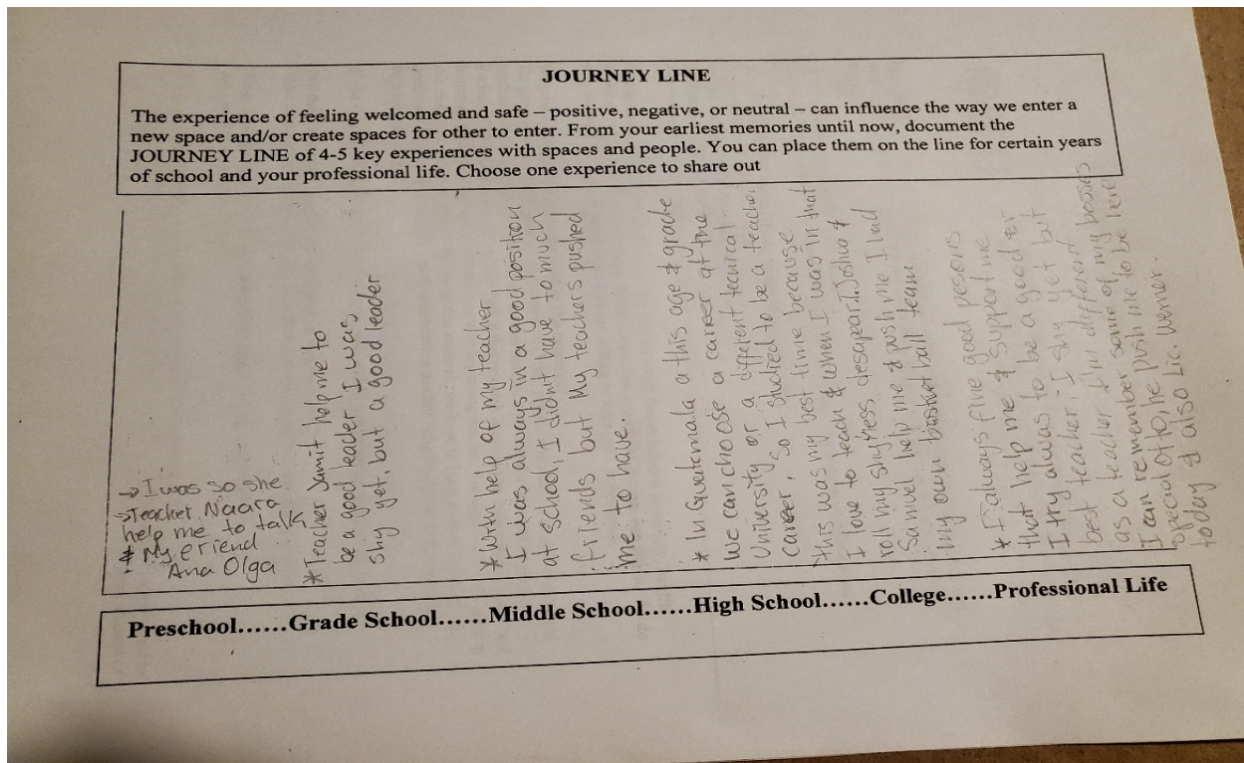 JOURNEY LINE
The experience of feeling welcomed and safe – positive, negative, or neutral – can influence the way we enter a
new space and/or create spaces for other to enter. From your earliest memories until now, document the
JOURNEY LINE of 4-5 key experiences with spaces and people. You can place them on the line for certain years
of school and your professional life. Choose one experience to share out
→ I was so she
→ Teacher Naara
help me to talk
* My friend
Ana Olga
* Teacher Yamit help me to
be a good leader I was
shy yet, but a good leader
* With help of my teacher
I was always in a good position
at school, I didnt have to much
friends but My teachers pushed
me to have.
* In Guatemala a this age & grade
We can choose a career at the
University or a different tecnical
career, so I studied to be a teacher
this was my best time because
I love to teach & when I was in that
roll my shyness desapear. Joshua &
Samuel help me & push me I had
my own basket ball team
* I always fine good pesons
that help me & support me
I try always to be a good or
best teacher, I shy yet but
as a teacher I'm different
I can remember some of my bosses
special Otto, he push me to be here
today & also Lic. Werner.
Preschool......Grade School......Middle School......High School......College......Professional Life